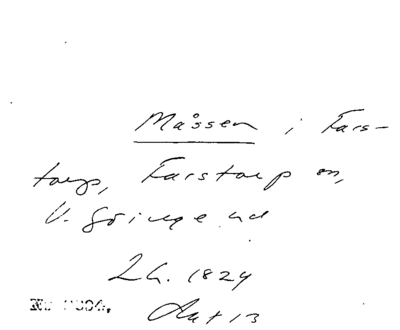 Måssen i Fars-
torp, Farstorp sn,
V. Göinge hd
Lh. 1824
Akt 13